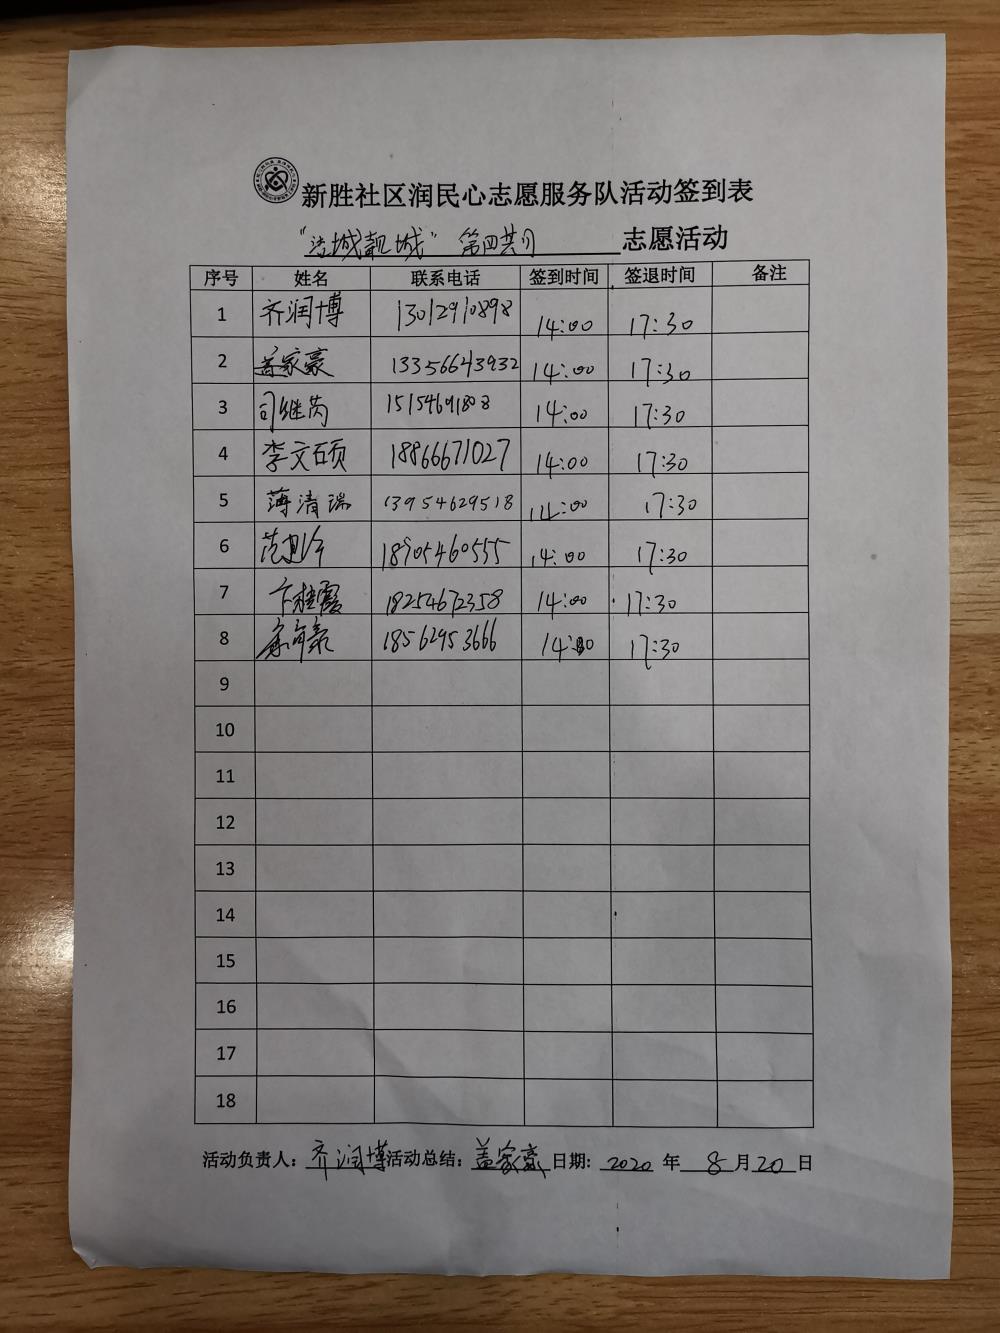 新胜社区润民心志愿服务队活动签到表
"洁城靓城" 第四共同 志愿活动
序号 姓名 联系电话 签到时间 签退时间 备注
1 齐润博 13012910898 14:00 17:30
2 盖家豪 13356643932 14:00 17:30
3 司继芮 15154691808 14:00 17:30
4 李文硕 18866671027 14:00 17:30
5 薄清瑞 13954629518 14:00 17:30
6 18905460555 14:00 17:30
7 卞桂霞 18254672358 14:00 17:30
8 18562953666 14:00 17:30
9
10
11
12
13
14
15
16
17
18
活动负责人: 齐润博 活动总结: 盖家豪 日期: 2020 年 8 月 20 日